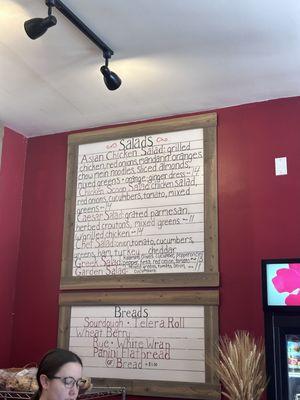 Salads
Asian Chicken Salad: grilled
chicken, red onions, mandarin oranges,
chow mein noodles, sliced almonds,
mixed greens - orange-ginger dress
Chicken Scoop Salad: chicken salad,
red onions, cucumbers, tomato, mixed
greens
Caesar Salad: grated parmesan
herbed croutons, mixed greens
w/grilled chicken
Chef Salad: onion, tomato, cucumbers,
greens, ham, turkey, cheddar
Greek Salad:
feta, red onion, tomato
Garden Salad:
cucumbers
Breads
Sourdough Telera Roll
Wheat Berry
Rye White Wrap
Panini Flatbread
GF Bread